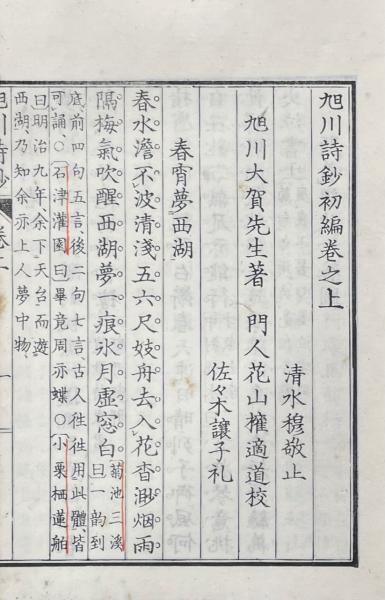 旭川詩鈔初編卷之上
清水穆敬止
旭川大賀先生著　門人花山㩁適道校
佐々木讓子礼
春宵夢西湖
春水澹不波清淺五六尺妓舟去入花杳渺烟雨
隔梅氣吹醒西湖夢一痕氷月虛窓白菊池三溪曰一韵到
底前四句五言後二句七言古人徃徃用此體皆
可誦〇石津灌園曰畢竟周亦蝶〇小栗栖蓮舶
曰明治九年余下天台而遊
西湖乃知余亦上人夢中物
旭川詩鈔
卷上
一